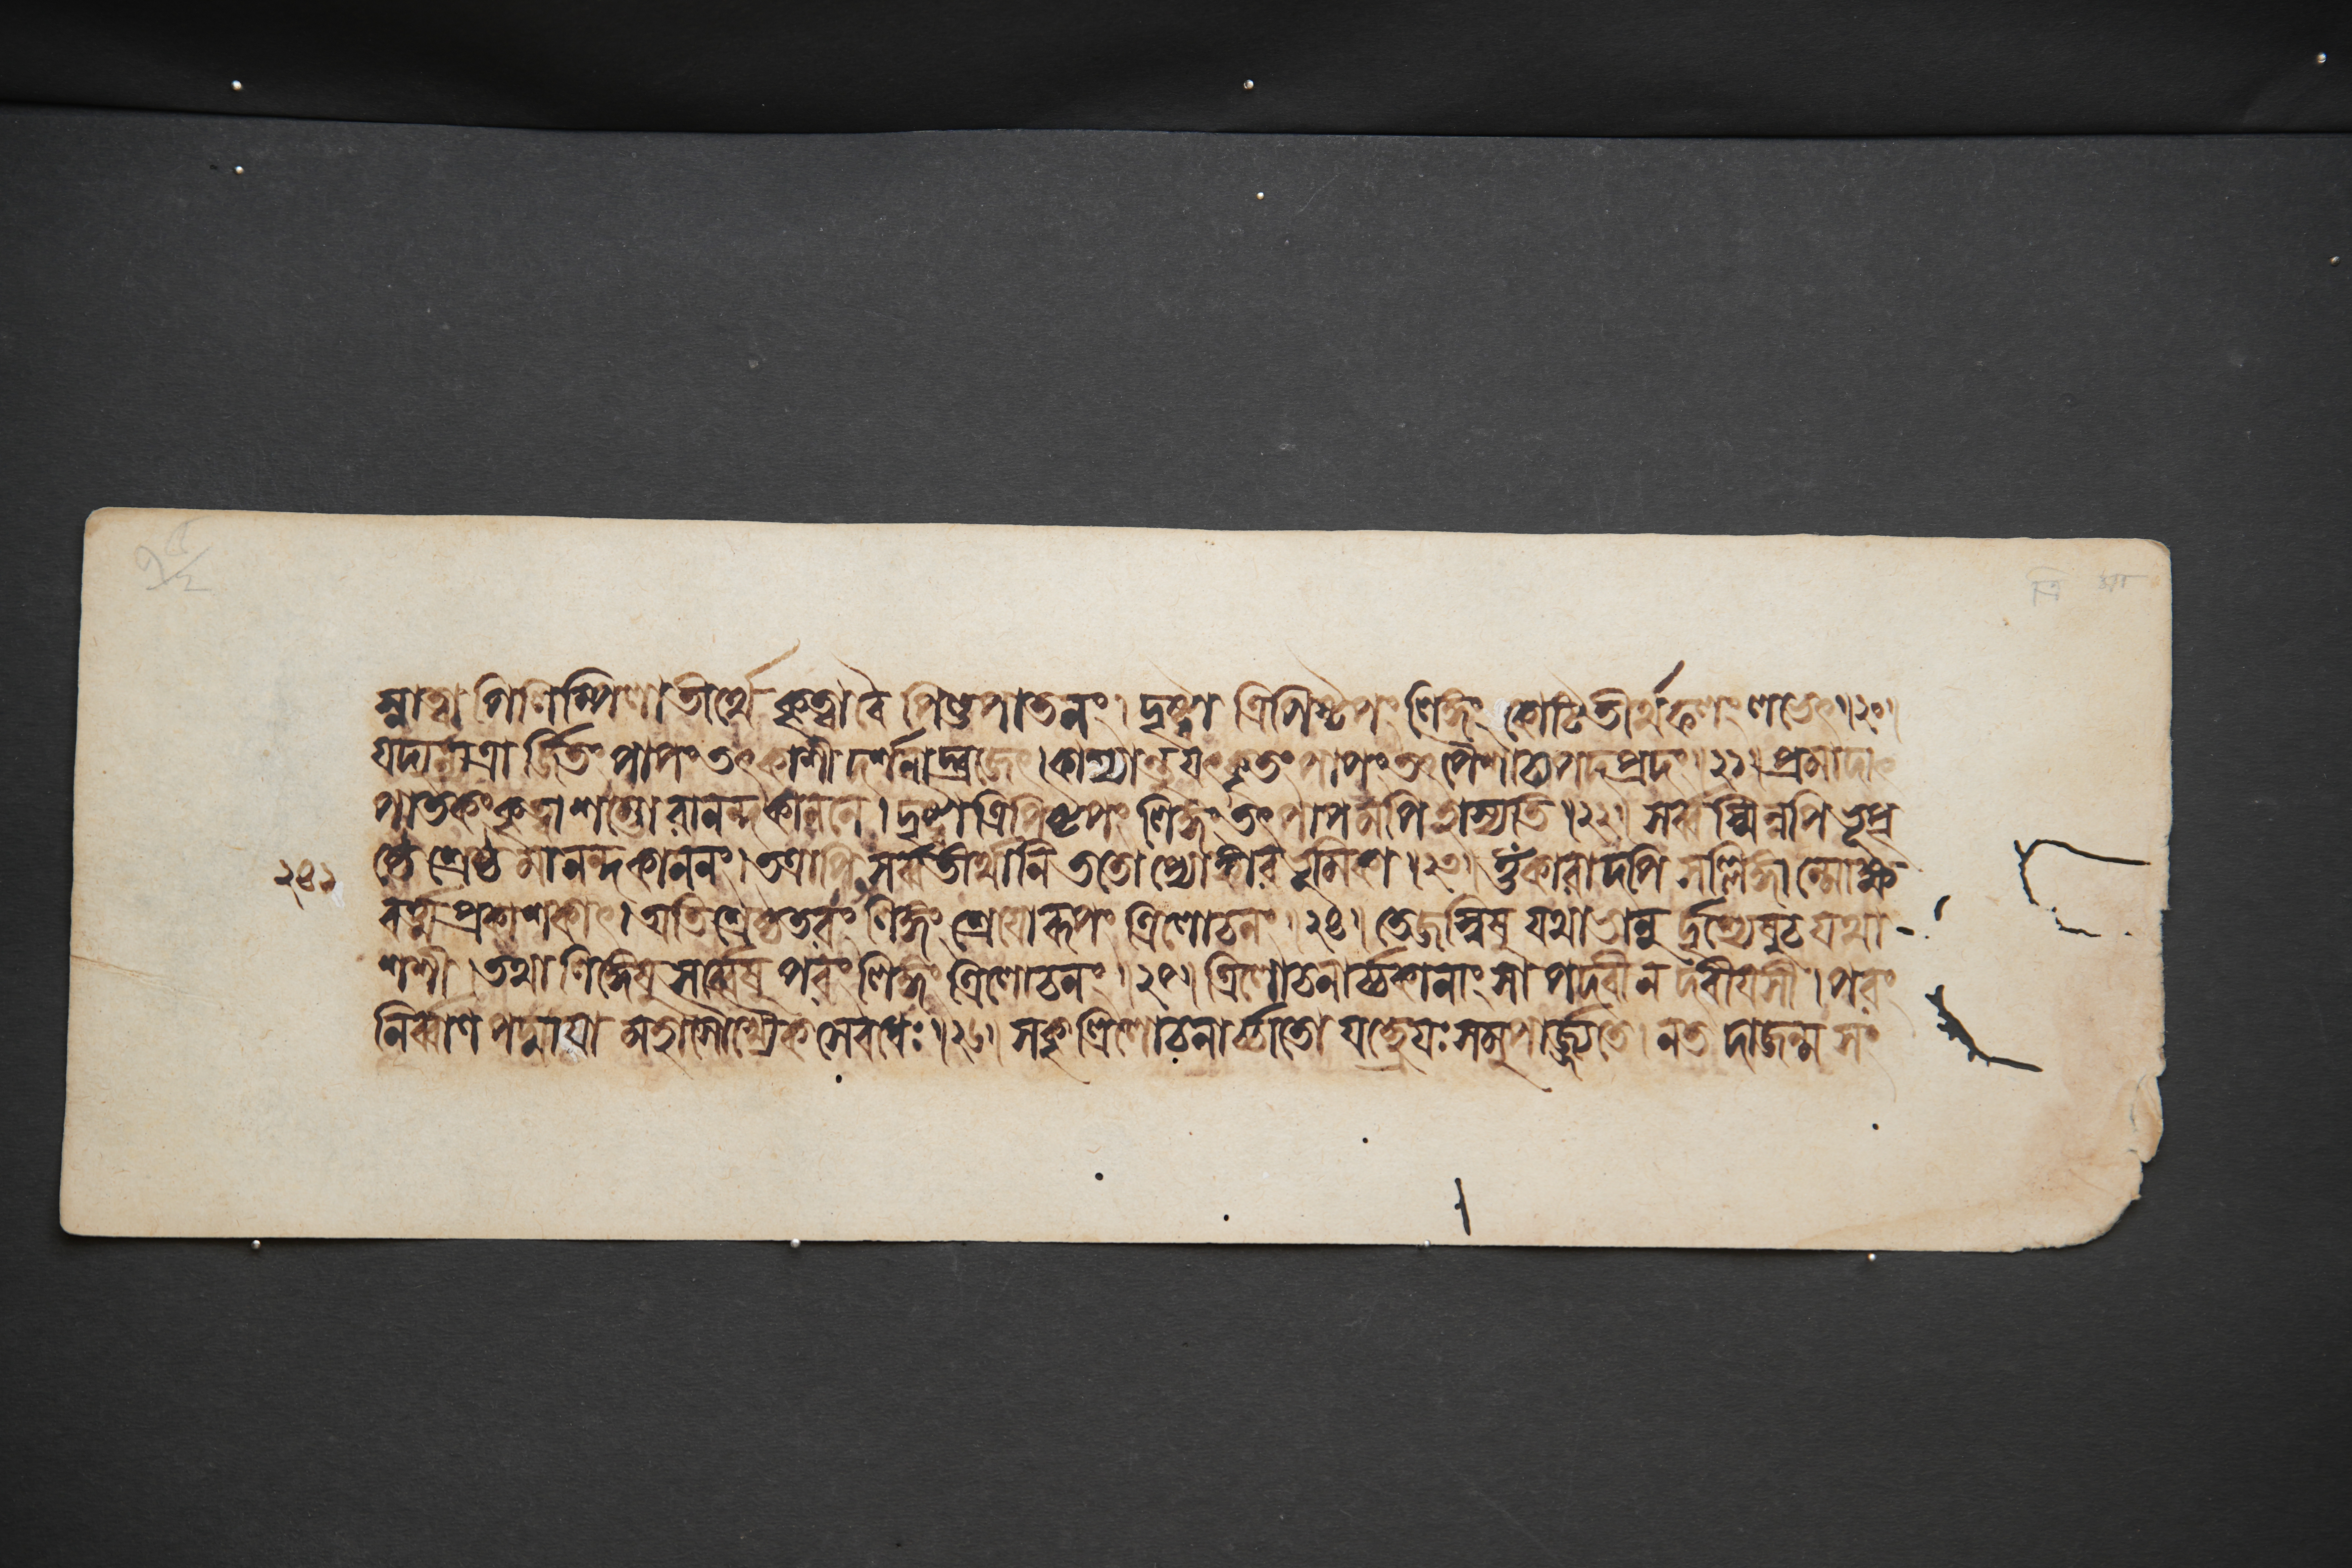 স্নাত্বা পিলিপ্পিলাতীর্থে কৃত্বা বৈ পিণ্ডপাতনং। দৃষ্ট্বা ত্রিপিষ্টপং লিঙ্গং কোটিতীর্থফলং লভেৎ॥২০॥
যদন্যত্রার্জিতং পাপং তৎ কাশীদর্শনাদ্ব্রজেৎ। কাশ্যান্তু যৎ কৃতং পাপং তৎ পৈশাচ্যপদপ্রদং॥২১॥ প্রমাদাৎ
পাতকং কৃত্বা শম্ভোরানন্দকাননে। দৃষ্ট্বা ত্রিপিষ্টপং লিঙ্গং তৎ পাপমপি হাস্যতি॥২২॥ সর্ব্বস্মিন্নপি ভূপৃ
ষ্ঠে শ্রেষ্ঠমানন্দকাননং। তত্রাপি সর্ব্বতীর্থানি ততোপ্যোঙ্কারভূমিকা॥২৩॥ ওঁকারাদপি সল্লিঙ্গান্মোক্ষ
২৪২
বর্ত্মপ্রকাশকাৎ। অতিশ্রেষ্ঠতরং লিঙ্গং শ্রেয়োরূপং ত্রিলোচনং॥২৪॥ তেজস্বিষু যথা ভানুর্দৃশ্যেষু চ যথা
শশী। তথা লিঙ্গেষু সর্ব্বেষু পরং লিঙ্গং ত্রিলোচনং॥২৫॥ ত্রিলোচনার্চ্চকানাং সা পদবী ন দবীয়সী। পরং
নির্ব্বাণপদ্মায়া মহাসৌখ্যৈকসেবধেঃ॥২৬॥ সকৃৎত্রিলোচনার্চ্চাতো যচ্ছ্রেয়ঃ সমুপার্জ্জ্যতে। ন তদাজন্ম সং